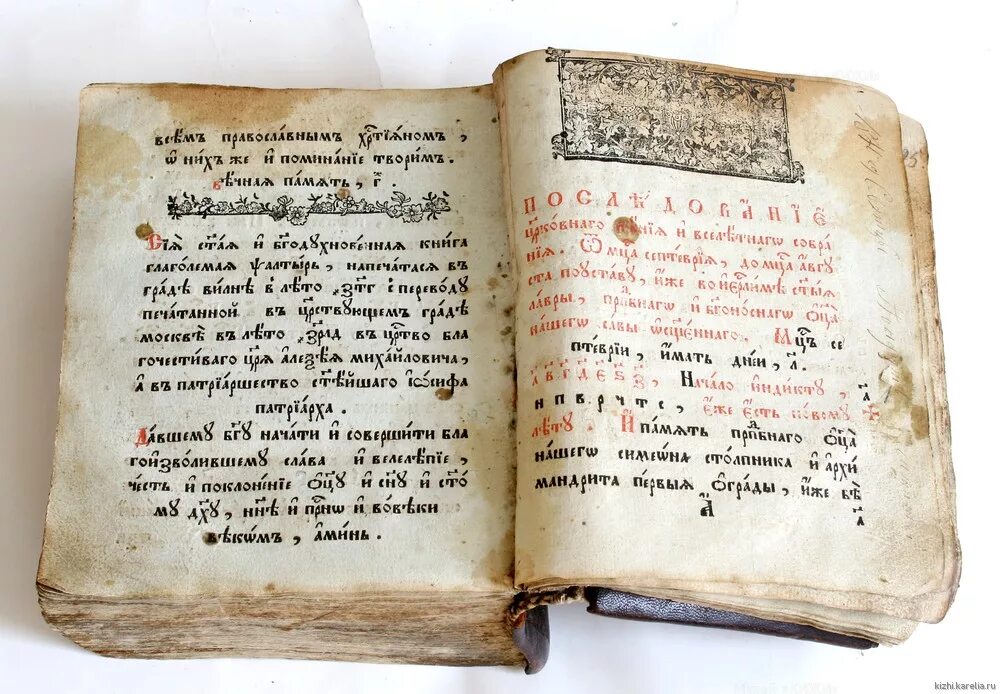 всѣмъ православнымъ хр҃тїѧномъ,
ѡ нихъ же и поминанїе творимъ.
вѣчная память, г҃.
Сїѧ ст҃ая и бг҃одꙋхновенная книга
глаголемая ѱалтырь, напечатася въ
градѣ вилнѣ в лѣто ҂зтг с переводꙋ
печатанной в црⷭ҇твꙋющемъ градѣ
москвѣ въ лѣто ҂зрд въ црⷭ҇тво бла
гочестиваго цр҃я алеѯѣя михайловича,
а въ патрїаршество ст҃ѣйшаго їѡсифа
патрїарха.
Давшемꙋ бг҃ꙋ начати и совершити бла
гоизволившемꙋ слава и велелѣпїе,
честь и поклоненїе ѻц҃ꙋ и сн҃ꙋ и ст҃о
мꙋ дх҃ꙋ, нн҃ѣ и прⷭ҇нѡ и во вѣки
вѣкѡмъ, аминь.
ПОСЛѢДОВАНІЕ
црк҃овнаго пѣнїя и вселѣтнагѡ собра
нїя. Ѿ мц҃а септеврїа, до мц҃а авгꙋ
ста по ꙋставꙋ, иже во їерⷭ҇лимѣ ст҃ыя
лавры, прпⷣбнагѡ и бг҃оноснагѡ ѻц҃а
нашегѡ савы ѡсщ҃еннаго. Мцⷭ҇ъ се
птеврїи, имать дни, л҃.
Начало индиктꙋ,
еже есть новомꙋ
лѣтꙋ. И память прпⷣбнаго ѻц҃а
нашегѡ симеѡна столпника и архи
мандрита первыя ѻграды, иже бѣ
а҃
kizhi.karelia.ru